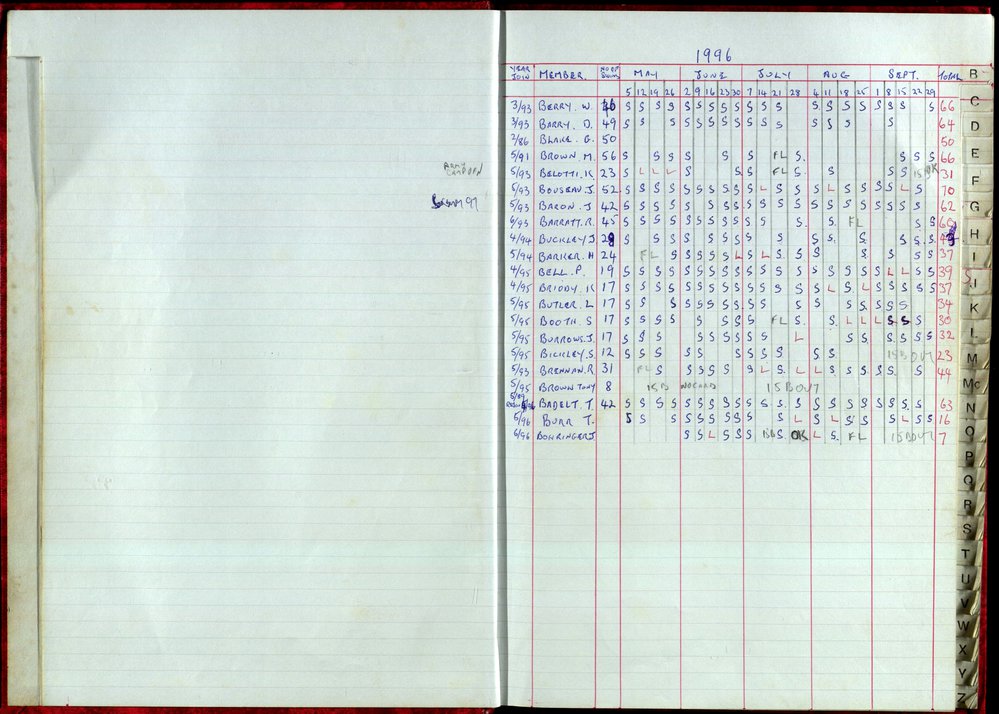 1996
YEAR JOIN MEMBER. NO OF SWIMS MAY JUNE JULY AUG SEPT. TOTAL
5 12 19 26 2 9 16 23 30 7 14 21 28 4 11 18 25 1 8 15 22 29
3/93 BERRY. W. S S S S S S S S S S S S S S S S S S S S 66
3/93 BARRY. D. 49 S S S S S S S S S S S S S S S 64
2/86 BLAKE. G. 50 50
5/91 BROWN. M. 56 S S S S S S FL S. S S S 66
ARMY
5/93 BELOTTI. K 23 S L L L S S S FL S. S S S 15 OK 31
5/93 BOUSEAU. J. 52 S S S S S S S S S S L S S S L S S S S L S 70
5/93 BARON. J 42 S S S S S S S S S S S S S S S S S S S S S 62
6/93 BARRATT. R. 45 S S S S S S S S S S S S. S. FL S S 60
4/94 BUCKLEY J. S S S S S S S S S S S. S S S. S
5/94 BARKER. H 24 FL S S S S S L S L S S S S S S S 37
4/95 BELL. P. 19 S S S S S S S S S S S S S S S S S S L L S S 39
4/95 BRIODY. K 17 S S S S S S S S S S S L S S S L S L S S S S 37
5/95 BUTLER. L 17 S S S S S S S S S S S S S S S S S 34
5/95 BOOTH. S 17 S S S S S S S S FL S. S. L L L S S S 30
5/95 BURROWS. J. 17 S S S S S S S L S S S S S S 32
5/95 BICKLEY. S 12 S S S S S S S S S S S 15B OUT 23
5/93 BRENNAN. R. 31 FL S S S S S S S L S. L L S S S S S S. S 44
5/95 BROWN TONY 8 15B NO CARD 15 B OUT
5/89
BADELT. T. 42 S S S S S S S S S S S S S S S S S S S S S 63
5/96 BURR T. S S S S S S S S S S L S L S S S L S 16
6/96 BOHRINGER J. S S L S S S S OK L S. FL 15 B OUT 7
B
C
D
E
F
G
H
I
J
K
L
M
Mc
N
O
P
Q
R
S
T
U
V
W
X
Y
Z